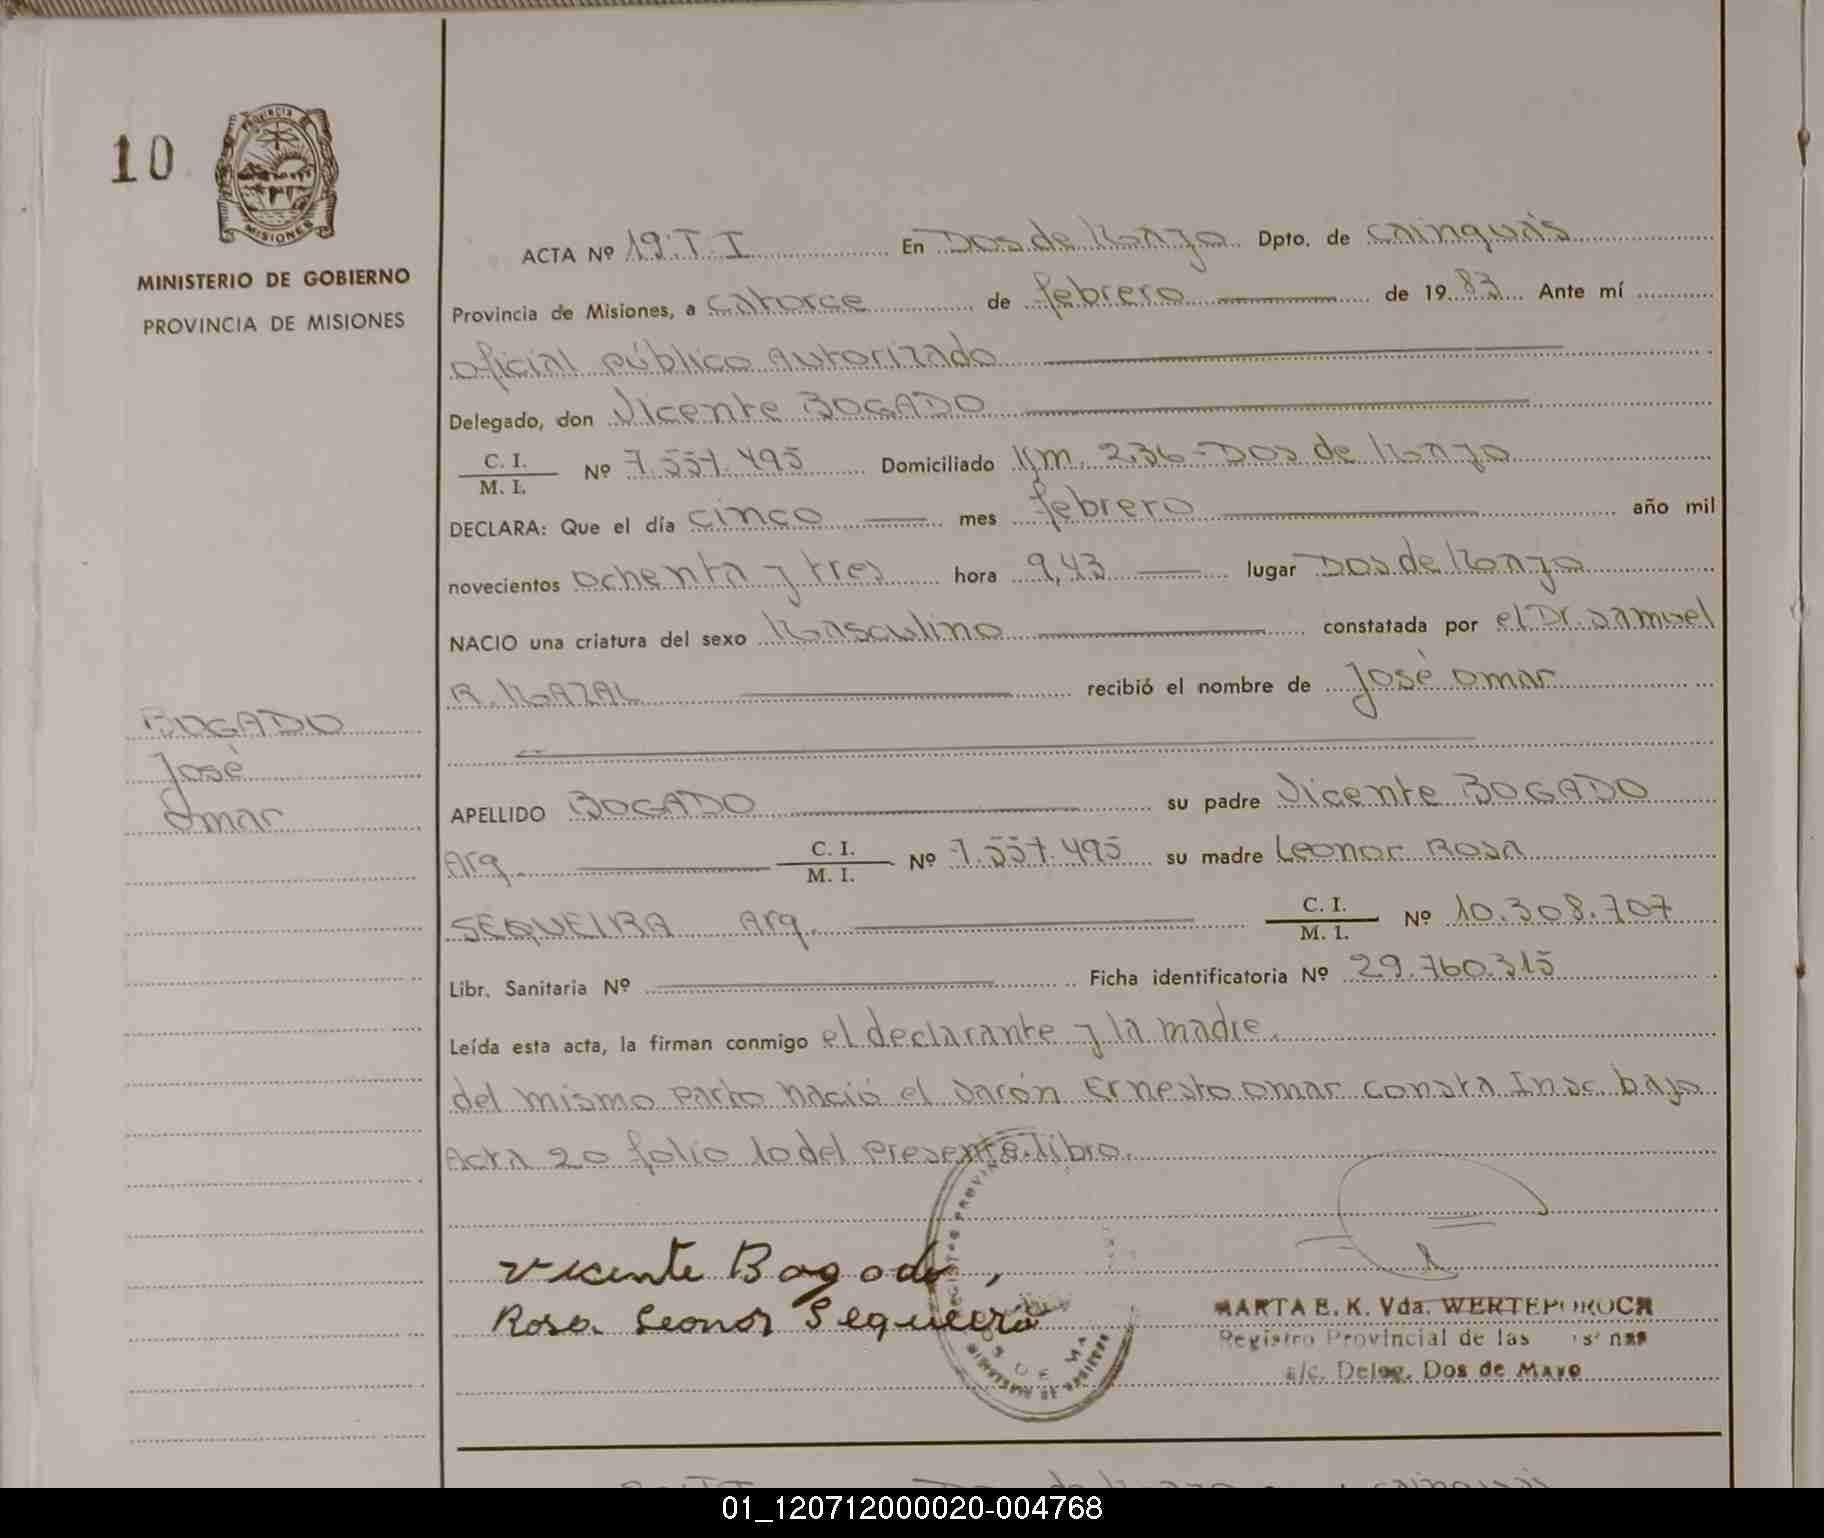 10
PROVINCIA
MISIONES
MINISTERIO DE GOBIERNO
PROVINCIA DE MISIONES
ACTA Nº 19.T.I En Dos de Mayo Dpto. de Cainguás
Provincia de Misiones, a catorce de febrero de 1983 Ante mí
oficial público autorizado
Delegado, don Vicente BOGADO
C. I.
M. I. Nº 7.557.495 Domiciliado Km. 236 - Dos de Mayo
DECLARA: Que el día cinco mes febrero año mil
novecientos ochenta y tres hora 9,43 lugar Dos de Mayo
NACIO una criatura del sexo Masculino constatada por el Dr. Samuel
R. MAZAL recibió el nombre de José Omar
BOGADO
José
Omar
APELLIDO BOGADO su padre Vicente BOGADO
Arg. C. I.
M. I. Nº 7.557.495 su madre Leonor Rosa
SEQUEIRA Arg. C. I.
M. I. Nº 10.308.707
Libr. Sanitaria Nº Ficha identificatoria Nº 29.760.315
Leída esta acta, la firman conmigo el declarante y la madre.
del mismo parto nació el varón Ernesto Omar consta Insc. bajo
Acta 20 folio 10 del presente libro.
Vicente Bogado,
Rosa Leonor Sequeira
MARTA E. K. Vda. WERTEPOROCH
Registro Provincial de las
a/c. Deleg. Dos de Mayo
01_120712000020-004768